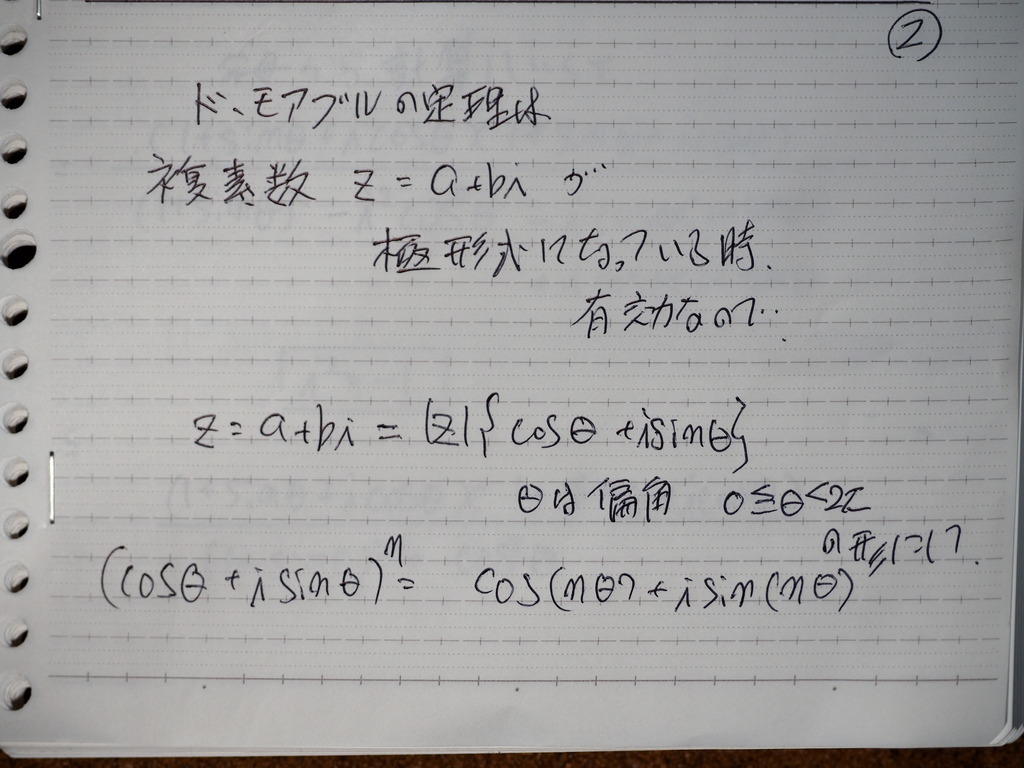 ②
ド・モアブルの定理は
複素数 z = a+bi が
極形式になっている時、
有効なので‥
z = a+bi = |z|{cosθ +isinθ}
θは偏角 0≦θ<2π
の形にして、
(cosθ + i sinθ)ⁿ = cos(nθ) + i sin(nθ)